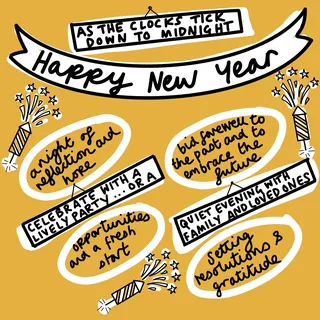 AS THE CLOCKS TICK
DOWN TO MIDNIGHT
Happy New Year
a night of
reflection and
hope
bid farewell to
the past and to
embrace the
future
CELEBRATE WITH A
LIVELY PARTY ... OR A
QUIET EVENING WITH
FAMILY AND LOVED ONES
opportunities
and a fresh
start
Setting
resolutions &
gratitude